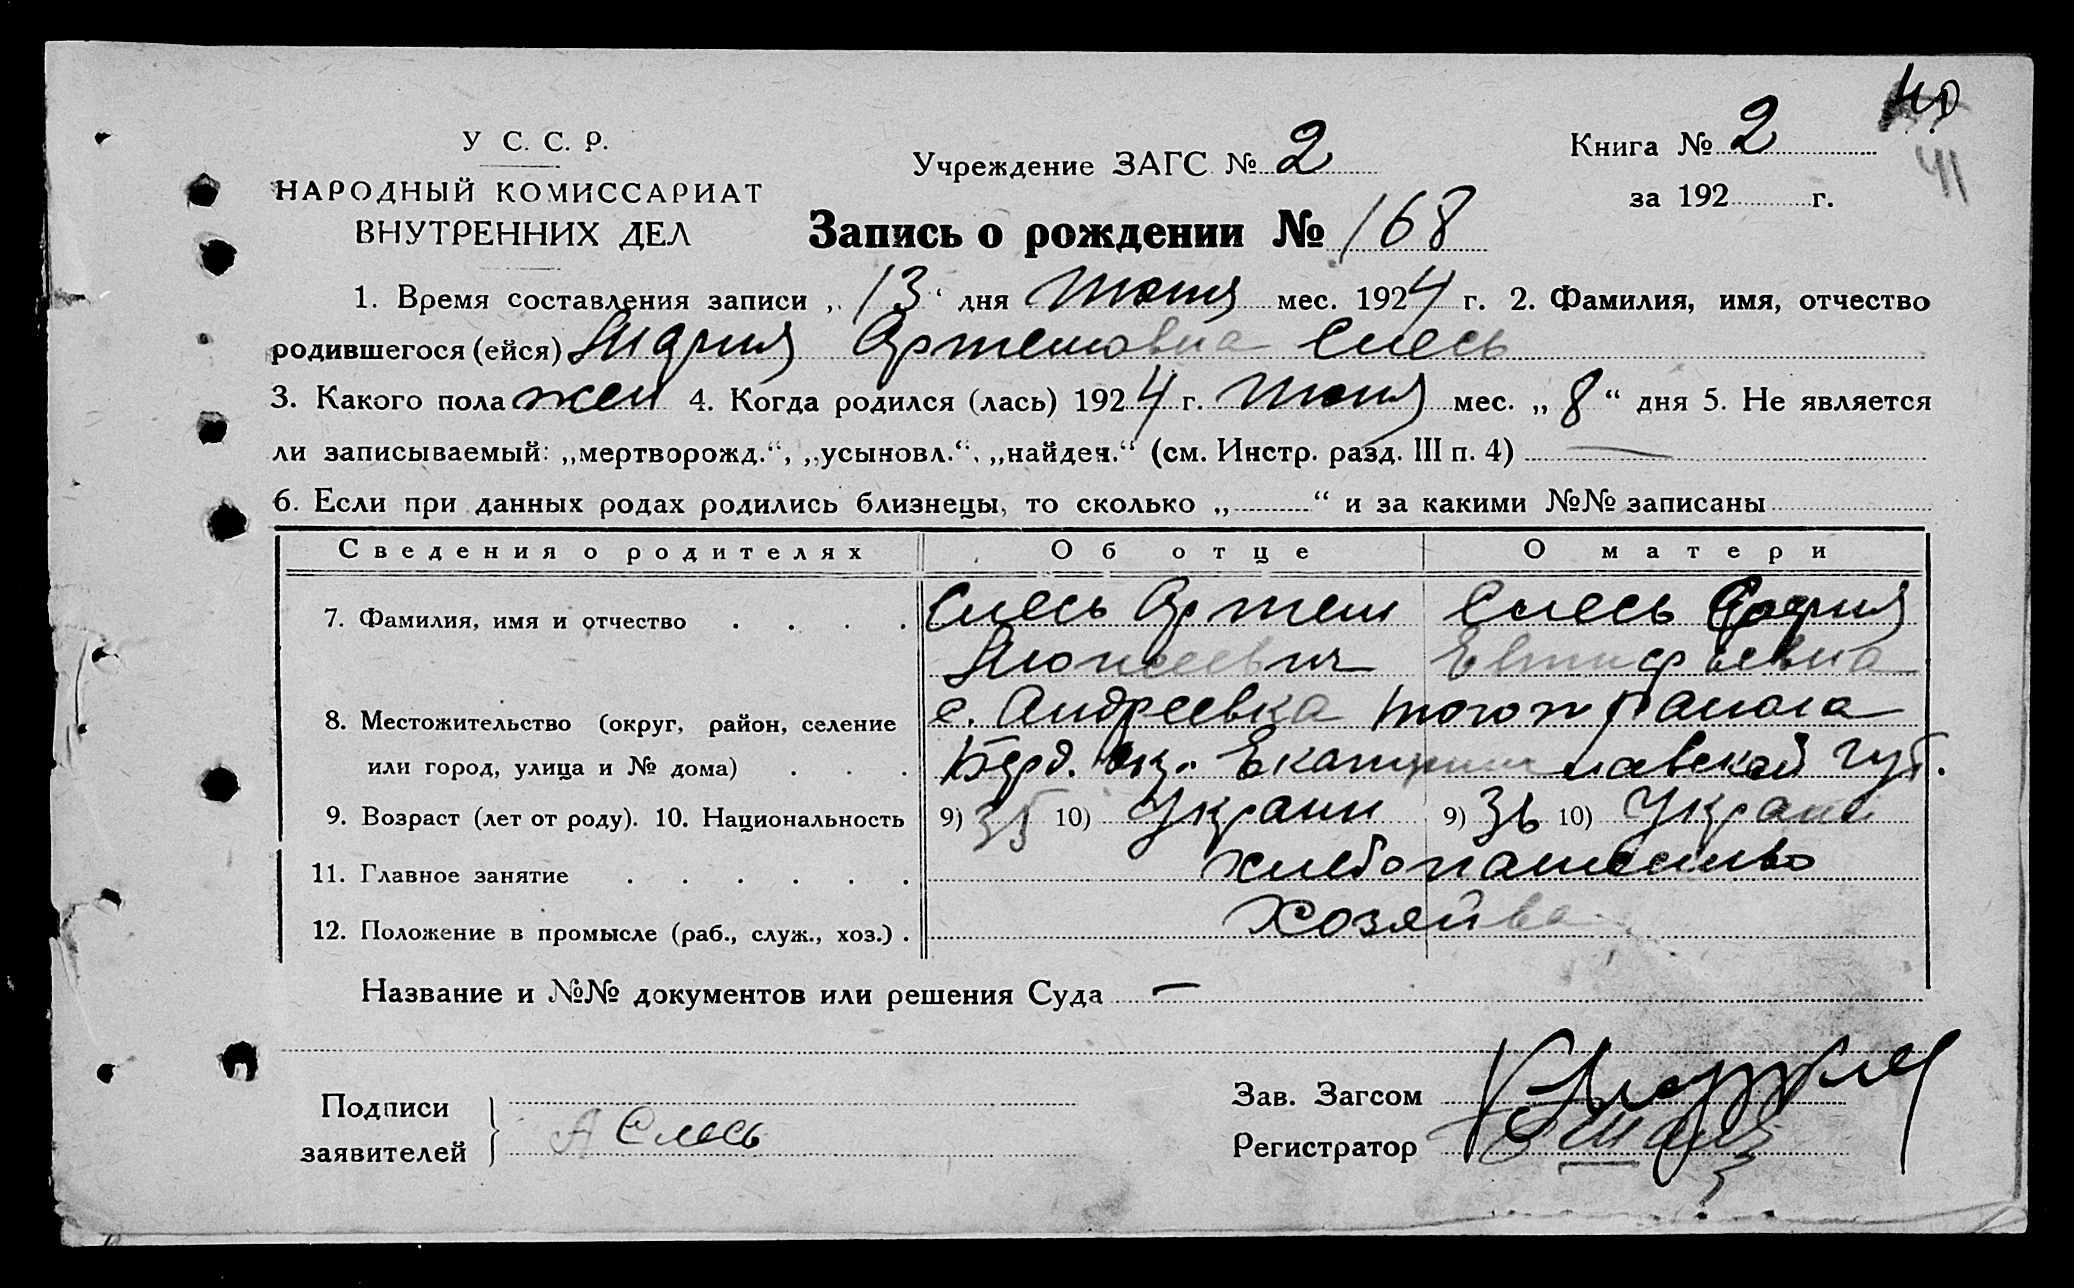 40
У С. С. Р.
Учреждение ЗАГС № 2
Книга № 2
41
НАРОДНЫЙ КОМИССАРИАТ
за 192 г.
ВНУТРЕННИХ ДЕЛ
Запись о рождении № 168
1. Время составления записи „ 13 “ дня Июня мес. 1924 г. 2. Фамилия, имя, отчество
родившегося (ейся) Мария Артемовна Слесь
3. Какого пола жен 4. Когда родился (лась) 1924 г. Июня мес. „ 8 “ дня 5. Не является
ли записываемый: „мертворожд.“, „усыновл.“, „найден.“ (см. Инстр. разд. III п. 4) —
6. Если при данных родах родились близнецы, то сколько „ “ и за какими №№ записаны
Сведения о родителях Об отце О матери
7. Фамилия, имя и отчество . . . . Слесь Артем Слесь София
Моисеевич
8. Местожительство (округ, район, селение с. Андреевка того ж района
или город, улица и № дома) . . . Берд. ок. Екатеринославской губ.
9. Возраст (лет от роду). 10. Национальность 9) 35 10) Украин 9) 36 10) Украин
11. Главное занятие . . . . . . хлебопашество
12. Положение в промысле (раб., служ., хоз.) . Хозяйва
Название и №№ документов или решения Суда —
Подписи
заявителей
А Слесь
Зав. Загсом
Регистратор